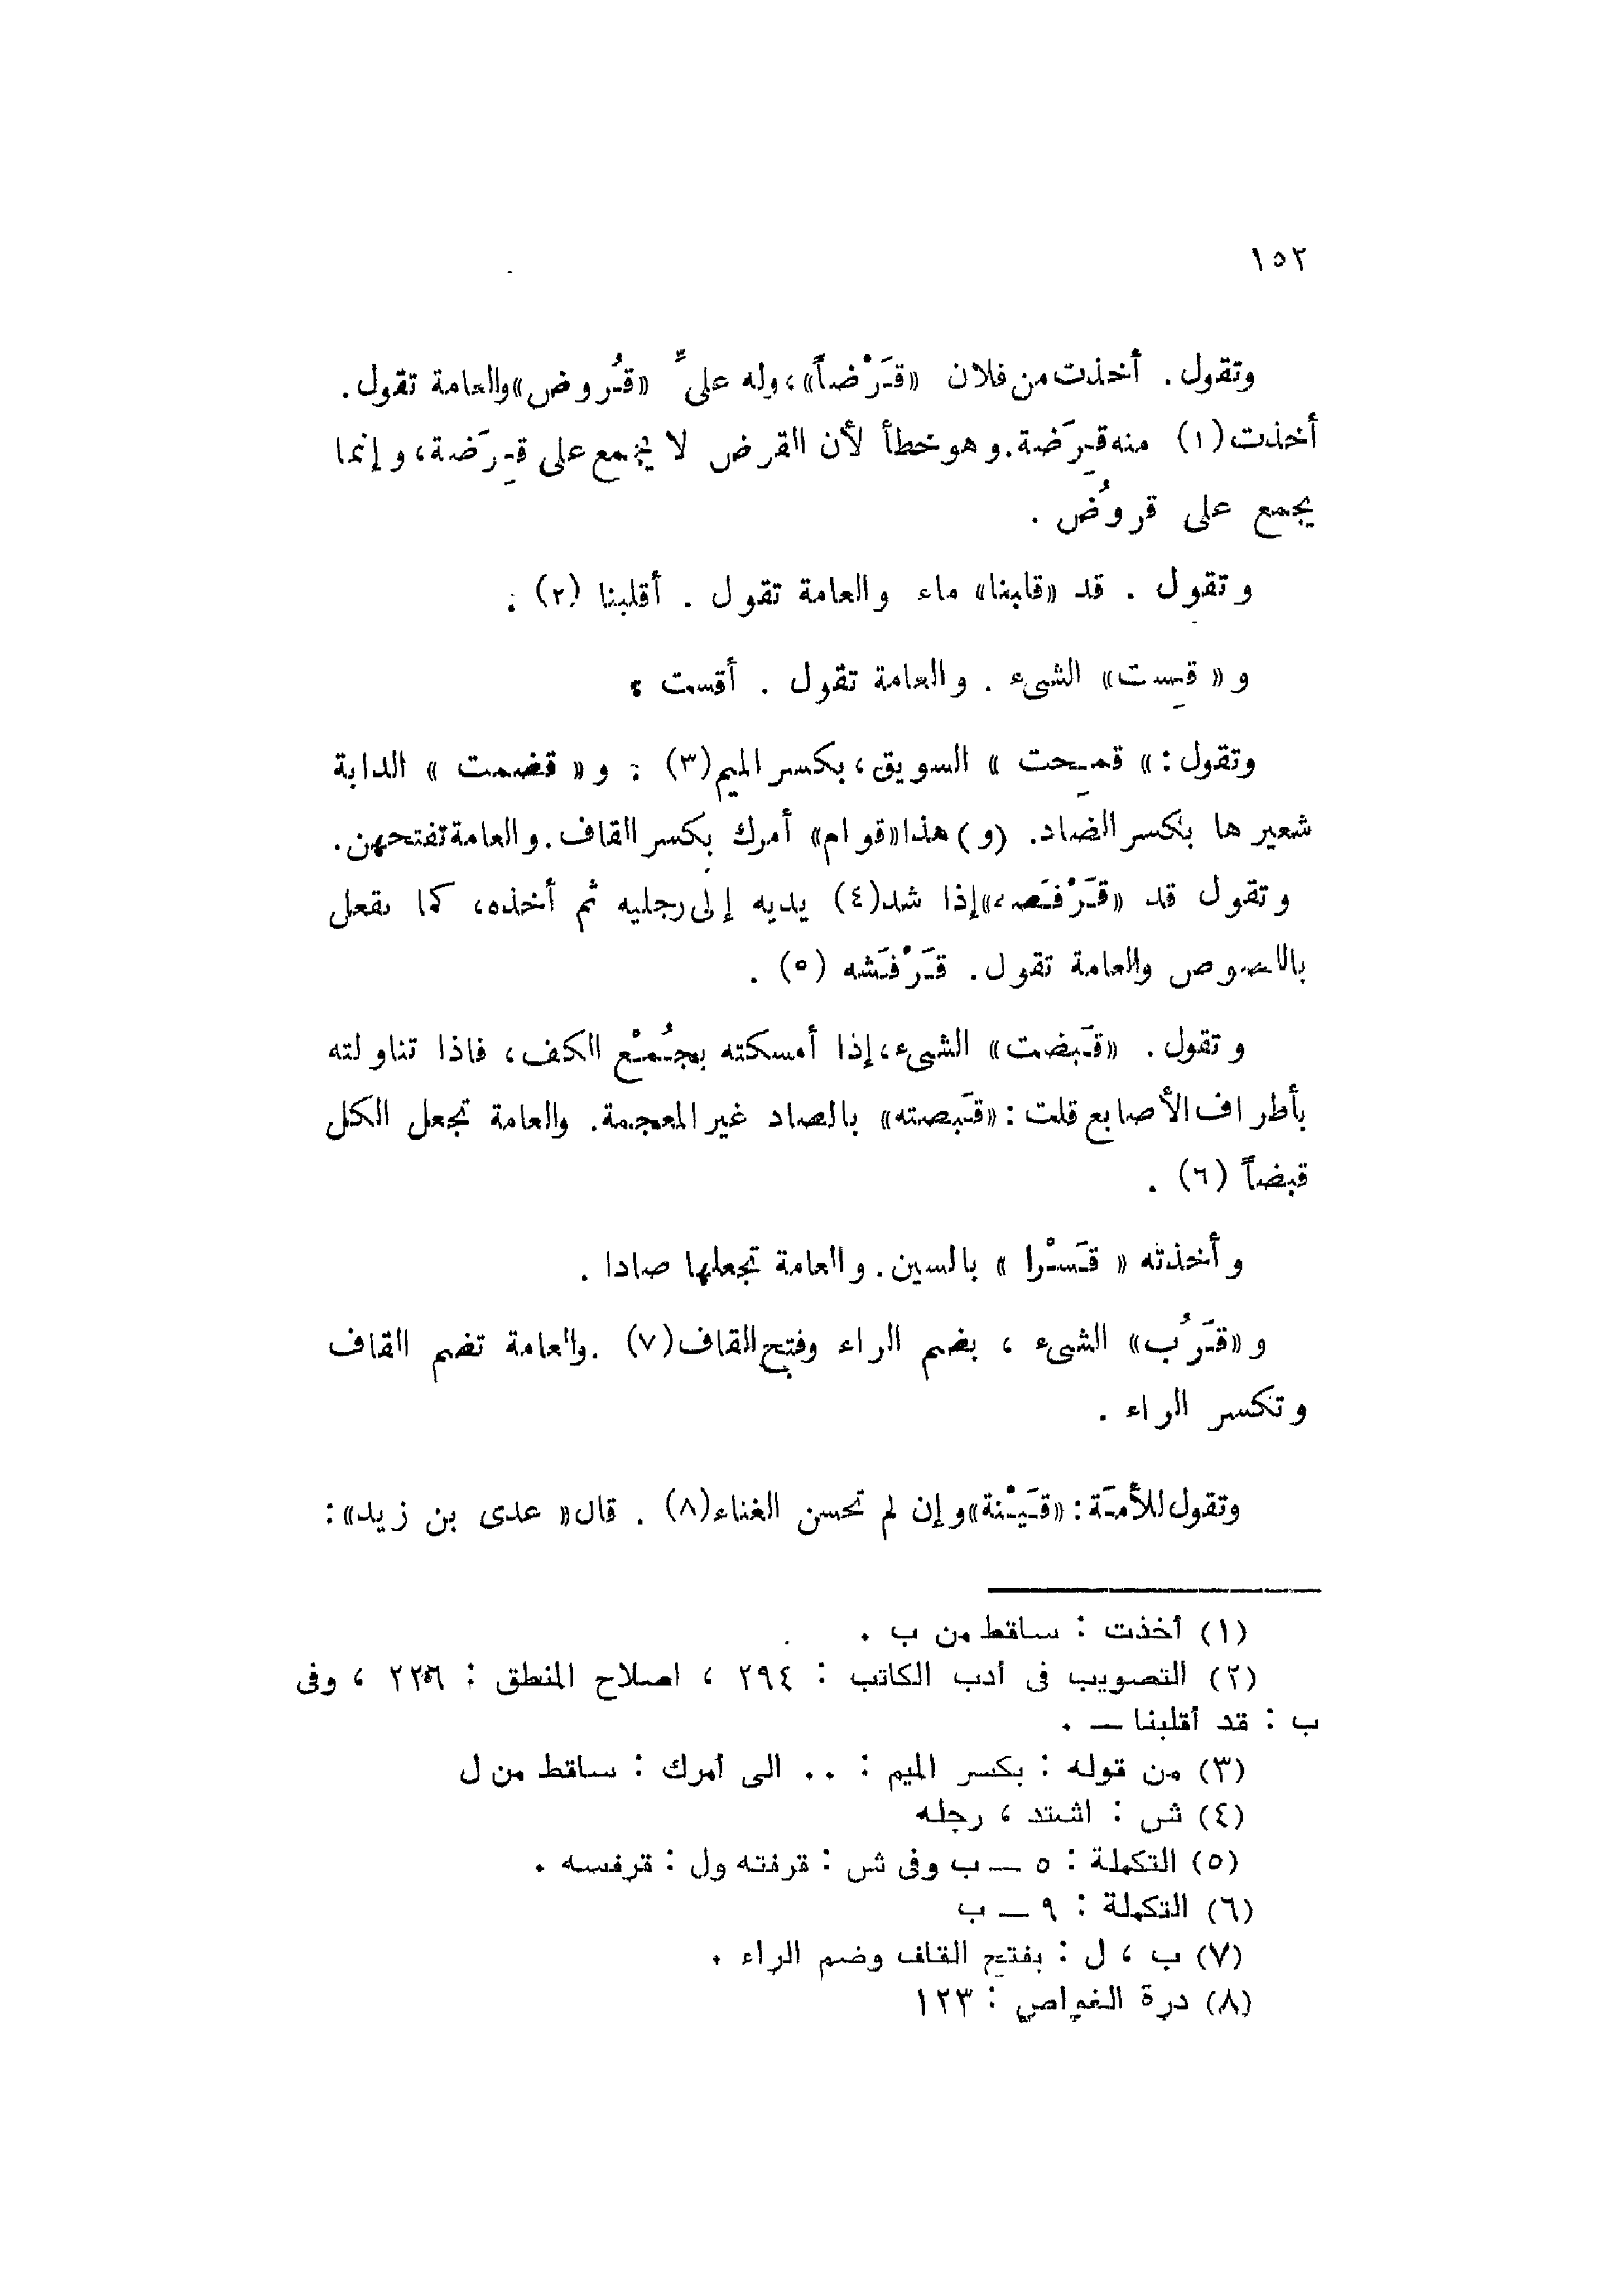 ١٥٢
وتقول. أخذت من فلان «قَرْضاً»، وله علىَّ «قُروض» والعامة تقول.
أخذت (١) منه قِرَضة. وهو خطأ لأن القرض لا يجمع على قِرَضة، وإنما
يجمع على قروُض .
وتقول . قد «قلبنا» ماء والعامة تقول . أقلبنا (٢) .
و«قِست» الشىء . والعامة تقول . أقست .
وتقول : «قمِحت» السويق، بكسر الميم (٣) . و«قضمت» الدابة
شعيرها بكسر الضاد. (و) هذا «قوام» أمرك بكسر القاف. والعامة تفتحهن.
وتقول قد «قَرْفَصه» إذا شد (٤) يديه إلى رجليه ثم أخذه، كما يفعل
باللصوص والعامة تقول. قَرْفَشه (٥) .
وتقول . «قَبضت» الشىء، إذا أمسكته بجُمْع الكف، فاذا تناولته
بأطراف الأصابع قلت : «قَبصته» بالصاد غير المعجمة. والعامة تجعل الكل
قبضاً (٦) .
وأخذته «قَسْرا» بالسين. والعامة تجعلها صادا .
و«قَرُب» الشىء ، بضم الراء وفتح القاف (٧) . والعامة تضم القاف
وتكسر الراء .
وتقول للأمَة : «قَيْنة» وإن لم تحسن الغناء (٨) . قال «عدى بن زيد» :
(١) أخذت : ساقط من ب .
(٢) التصويب فى أدب الكاتب : ٢٩٤ ، اصلاح المنطق : ٢٢٦ ، وفى
ب : قد أقلبنا — .
(٣) من قوله : بكسر الميم : .. الى أمرك : ساقط من ل
(٤) ش : اشتد ، رجله
(٥) التكملة : ٥ — ب وفى ش : قرفته ول : قرفسه .
(٦) التكملة : ٩ — ب
(٧) ب ، ل : بفتح القاف وضم الراء .
(٨) درة الغواص : ١٢٣